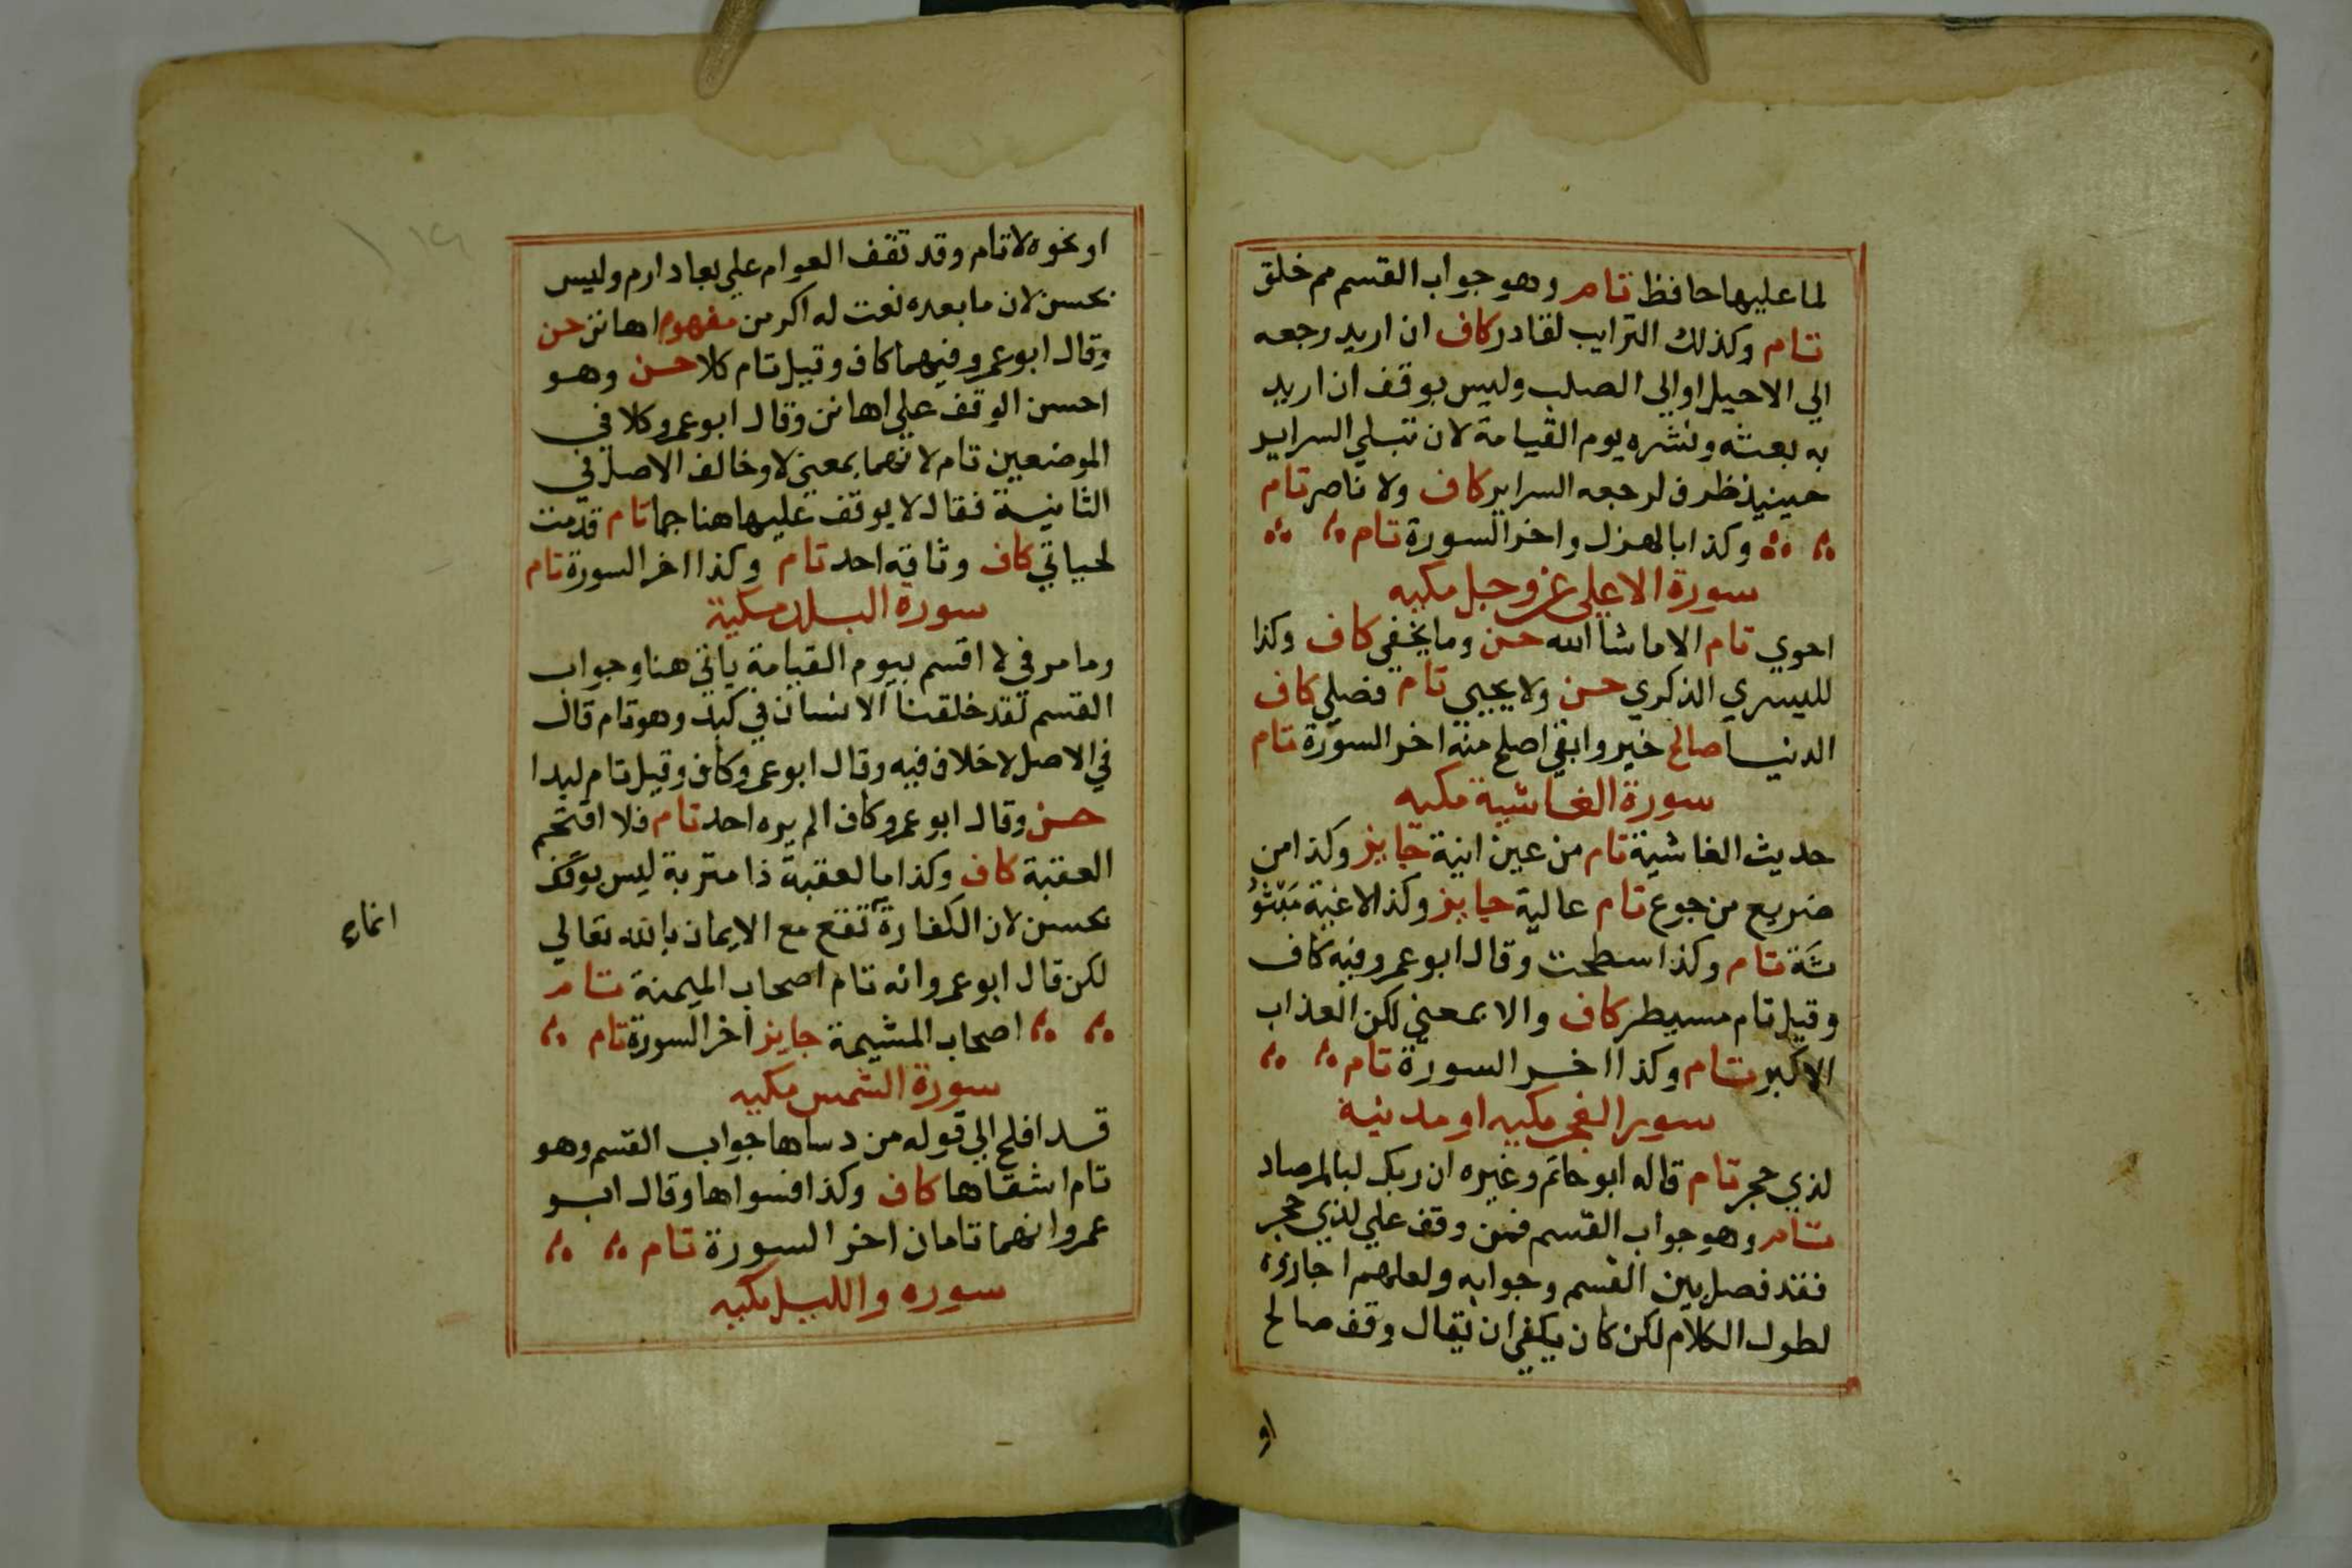 لما عليها حافظ تام وهو جواب القسم مم خلق
تام وكذلك الترايب لقادر كاف ان اريد رجعه
الي الاحيل او الي الصلب وليس بوقف ان اريد
به بعثه ونشره يوم القيامة لان تبلي السراير
حينيذ ظرف لرجعه السراير كاف ولا ناصر تام
وكذا بالهزل واخر السورة تام
سورة الاعلي عز وجل مكيه
احوي تام الا ما شا الله حسن وما يخفي كاف وكذا
لليسري الذكري حسن ولا يحيي تام فصلي كاف
الدنيا صالح خير وابقي اصلح منه اخر السورة تام
سورة الغاشية مكيه
حديث الغاشية تام من عين انية جايز وكذا من
ضريع من جوع تام عالية جايز وكذا لاغية مبثو
ثة تام وكذا سطحت وقال ابو عمرو فيه كاف
وقيل تام مسيطر كاف والا بمعني لكن العذاب
الاكبر تام وكذا اخر السورة تام
سور الفجر مكيه او مدنية
لذي حجر تام قاله ابو حاتم وغيره ان ربك لبالمرصاد
تام وهو جواب القسم فمن وقف علي لذي حجر
فقد فصل بين القسم وجوابه ولعلهم اجازوه
لطول الكلام لكن كان يكفي ان يقال وقف صالح
او
او نحوه لا تام وقد تقف العوام علي بعاد ارم وليس
بحسن لان ما بعده نعت له اكرمن مفهوم اهانن حسن
وقال ابو عمرو فيهما كاف وقيل تام كلا حسن وهو
احسن الوقف علي اهانن وقال ابو عمرو كلا في
الموضعين تام لانهما بمعني لا وخالف الاصل في
الثانية فقال لا يوقف عليها هنا جما تام قدمت
لحياتي كاف وثاقه احد تام وكذا اخر السورة تام
سورة البلد مكية
وما مر في لا اقسم بيوم القيامة ياتي هنا وجواب
القسم لقد خلقنا الانسان في كبد وهو تام قال
في الاصل لا خلاف فيه وقال ابو عمرو كاف وقيل تام لبدا
حسن وقال ابو عمرو كاف الم يره احد تام فلا اقتحم
العقبة كاف وكذا ما العقبة ذا متربة ليس بوقف
بحسن لان الكفارة تقع مع الايمان بالله تعالي
انماء
لكن قال ابو عمرو انه تام اصحاب الميمنة تام
اصحاب المشيمة جايز اخر السورة تام
سورة الشمس مكيه
قد افلح الي قوله من دساها جواب القسم وهو
تام اشقاها كاف وكذا فسواها وقال ابو
عمرو انهما تامان اخر السورة تام
سوره والليل مكيه